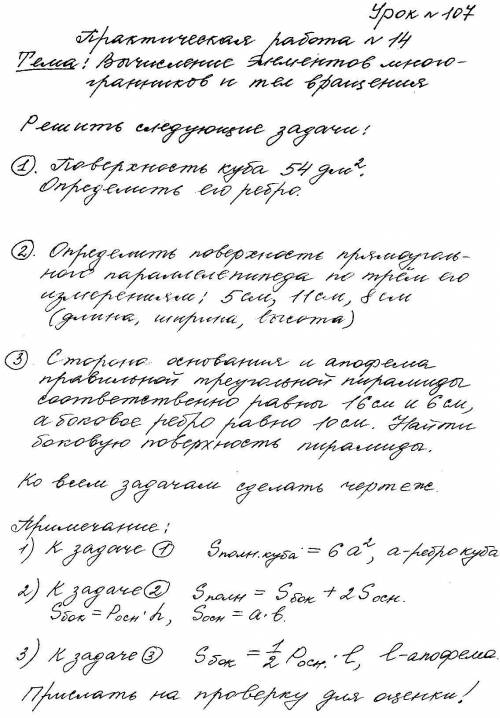 Урок № 107
Практическая работа № 14
Тема: Вычисление элементов много-
гранников и тел вращения
Решить следующие задачи:
①. Поверхность куба 54 дм².
Определить его ребро.
②. Определить поверхность прямоуголь-
ного параллелепипеда по трём его
измерениям: 5 см, 11 см, 8 см
(длина, ширина, высота)
③ Сторона основания и апофема
правильной треугольной пирамиды
соответственно равны 16 см и 6 см,
а боковое ребро равно 10 см. Найти
боковую поверхность пирамиды.
Ко всем задачам сделать чертеж.
Примечание:
1) К задаче ① Sполн.куба = 6a², a-ребро куба
2) К задаче ② Sполн = Sбок + 2Sосн.
Sбок = Pосн·h, Sосн = a·b.
3) К задаче ③ Sбок = 1/2 Pосн.·l, l-апофема.
Прислать на проверку для оценки!